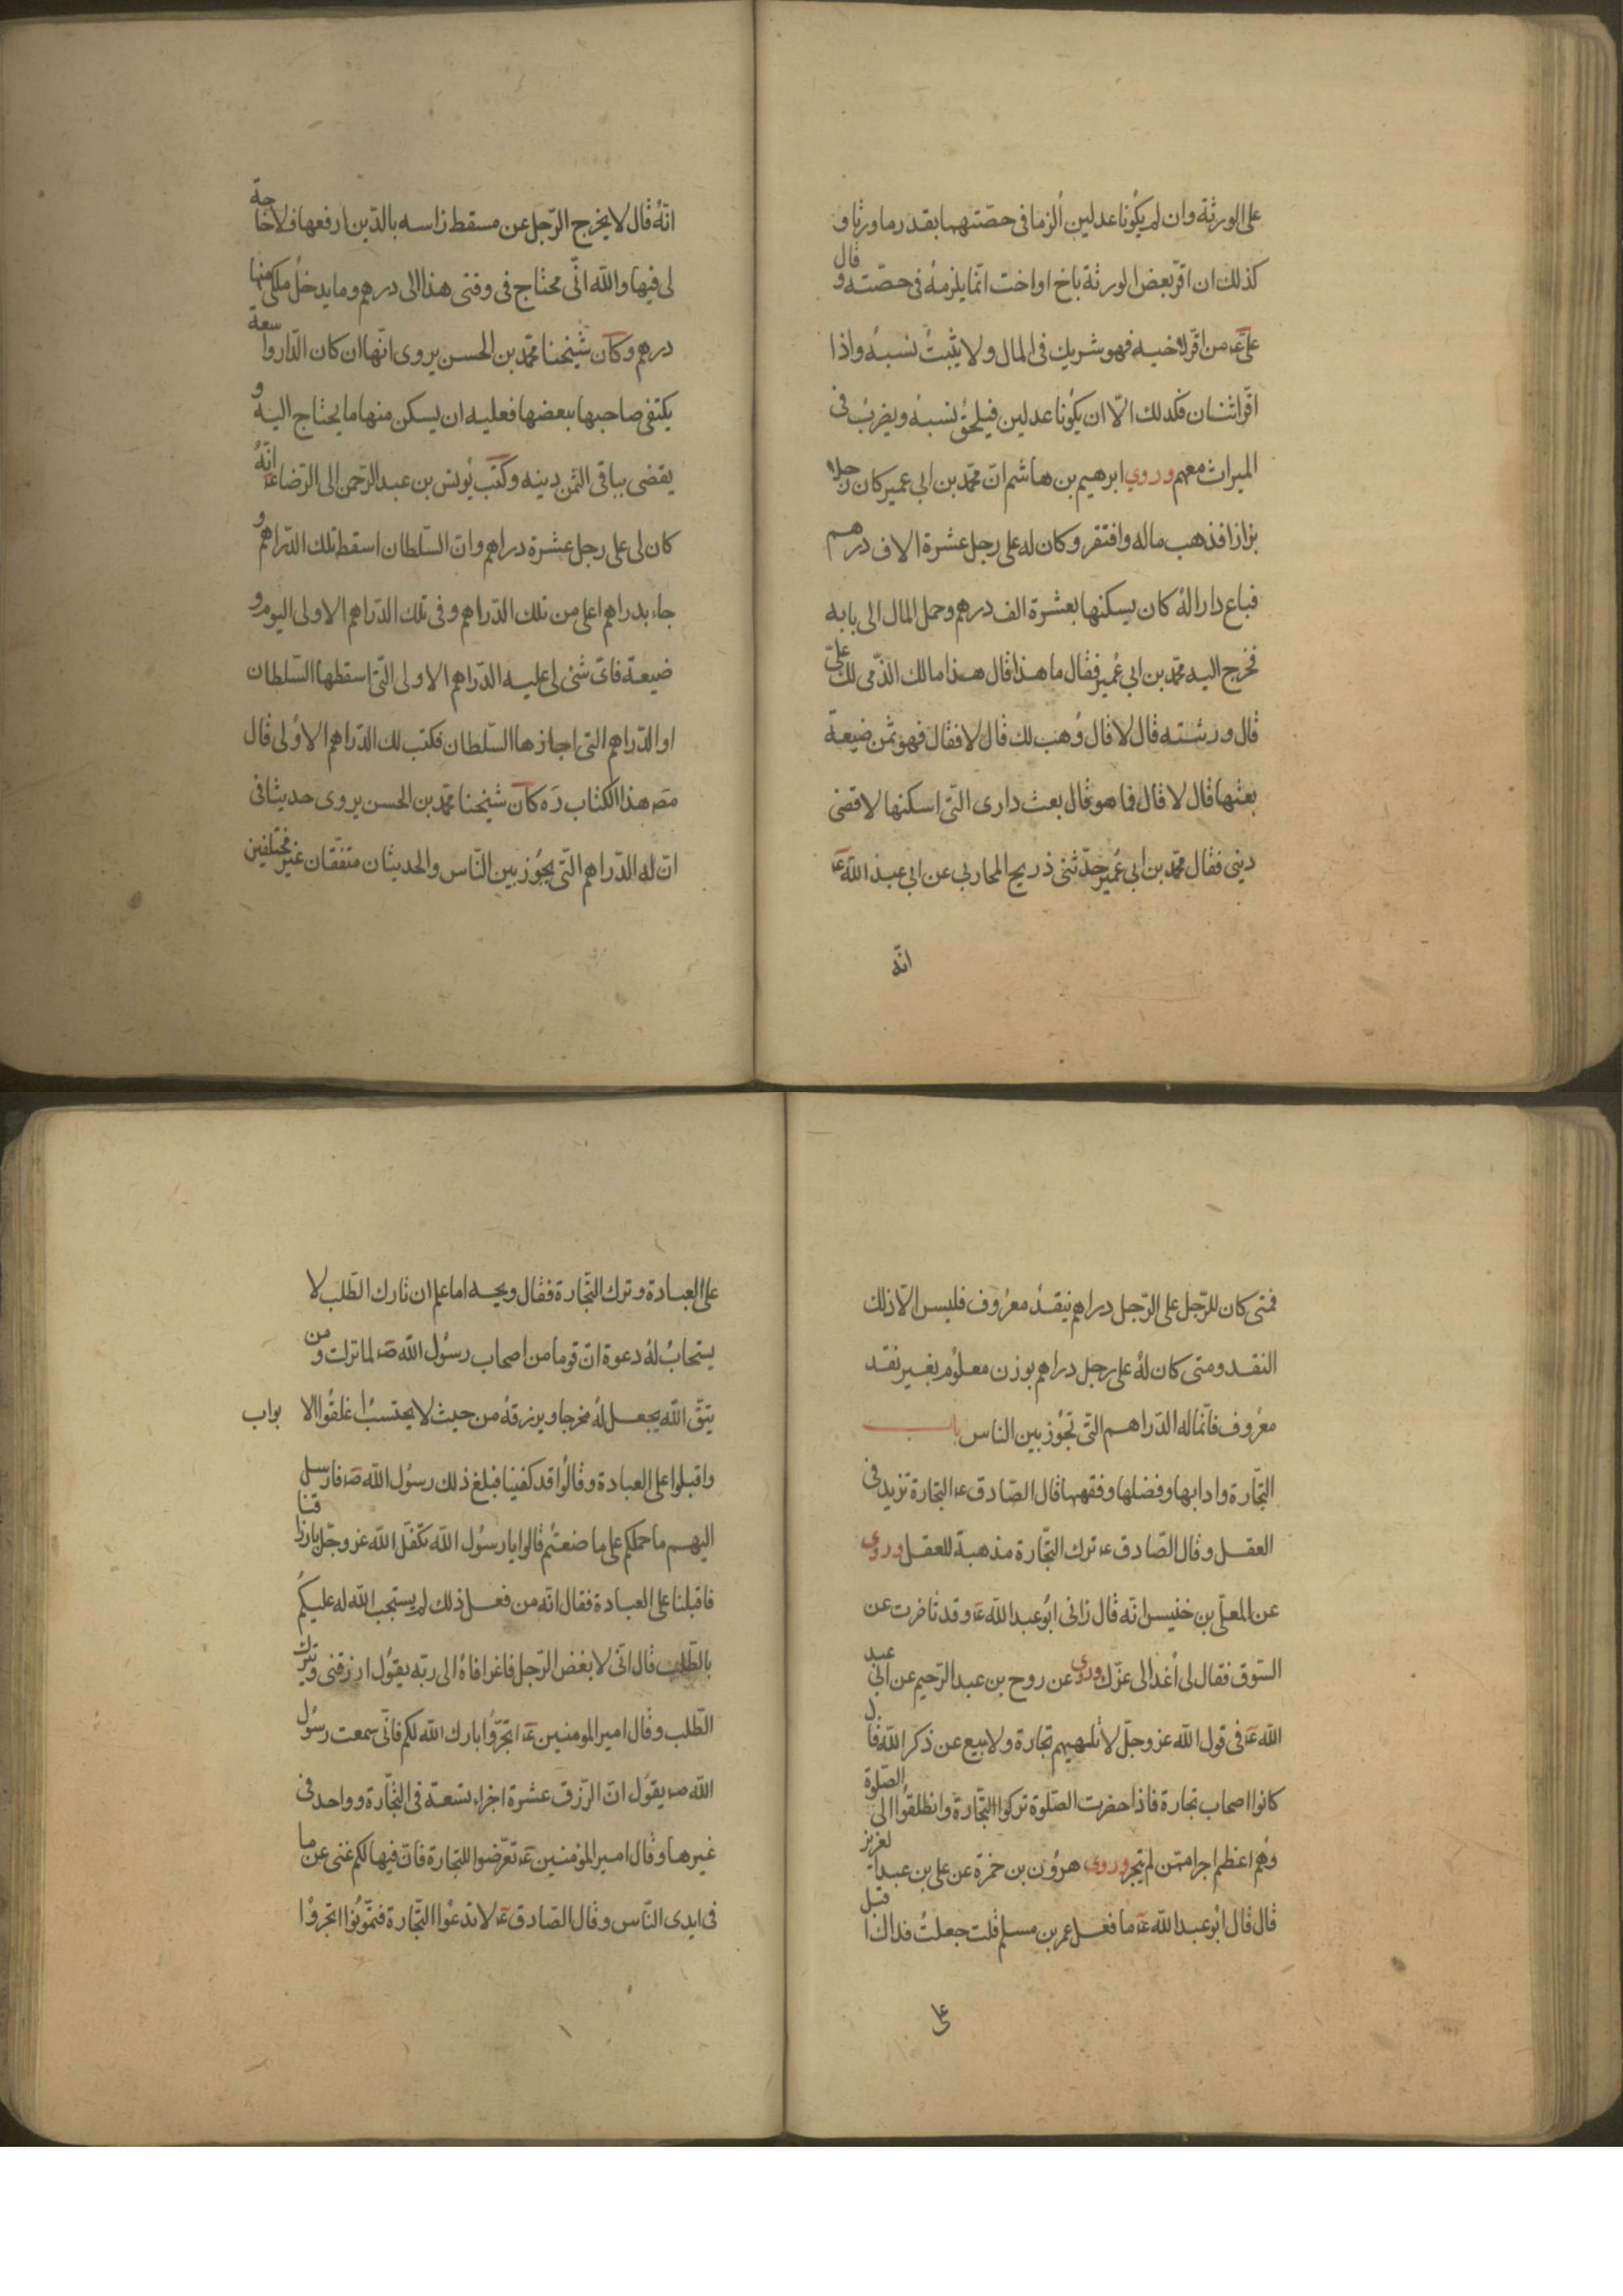 على الورثة وان لم يكونا عدلين ألزما فى حصّتهما بقدر ما ورثا و
كذلك ان اقرّ بعض الورثة باخ او اخت انّما يلزمهُ فى حصّته و قال
علىّ عَ من اقرّ لاخيه فهو شريك فى المال ولا يثبتُ نسبهُ واذا
اقرّ اثنان فكذلك الّا ان يكُونا عدلين فيلحقُ نسبهُ ويضربُ فى
الميراث معهم وروي ابرهيم بن هاشم انّ محمّد بن ابى عمير كان رجلا
بزازا فذهب ماله وافتقر وكان له على رجل عشرة الاف درهم
فباع دارا لهُ كان يسكنها بعشرة الف درهم وحمل المال الى بابه
فخرج اليه محمّد بن ابى عُمير فقال ما هذا قال هذا مالك الذّى لك علىّ
قال ورثته قال لا قال وُهب لك قال لا فقال فهو ثمن ضيعة
بعتها قال لا قال فما هو قال بعت دارى التّى اسكنها لاقضى
دينى فقال محمّد بن ابى عُمير حدّثنى ذريح المحاربى عن ابى عبد الله عَ
انّه
انّهُ قال لا يخرج الرّجل عن مسقط راسه بالدّين ارفعها فلا حاجة
لى فيها والله انّى محتاج فى وقتى هذا الى درهم وما يدخل ملكى منها
درهم وكان شيخنا محمّد بن الحسن يروى انّها ان كان الدّار واسعة
يكتفى صاحبها ببعضها فعليه ان يسكن منها ما يحتاج اليه و
يقضى بباقى الثمن دينه وكتب يُونس بن عبد الرّحمن الى الرّضا عَ انّهُ
كان لى على رجل عشرة دراهم وانّ السّلطان اسقط تلك الدّراهم و
جاء بدراهم اعلى من تلك الدّراهم وفى تلك الدّراهم الاولى اليوم و
ضيعة فاىّ شئ لى عليه الدّراهم الاولى التّى اسقطها السّلطان
او الدّراهم التى اجازها السّلطان فكتب لك الدّراهم الاوُلى قال
مصَ هذا الكتاب رَه كان شيخنا محمّد بن الحسن يروى حديثا فى
انّ له الدّراهم التّى يجُوز بين النّاس والحديثان متفّقان غير مختلفين
فمتى كان للرّجل على الرّجل دراهم بنقد معرُوف فليس الّا ذلك
النقد ومتى كان لهُ على رجل دراهم بوزن معلُوم بغير نقد
معرُوف فانّما له الدّراهم التّى تجُوز بين الناس باب
التّجارة وادابها وفضلها وفقهها قال الصّادق عَ التجارة تزيد فى
العقل وقال الصّادق عَ ترك التّجارة مذهبة للعقل وروى
عن المعلّى بن خنيس انّه قال رانى ابُو عبد الله عَ وقد تاخرت عن
السّوق فقال لى أغد الى عزّك وروى عن روح بن عبد الرّحيم عن ابى عبد
الله عَ فى قول الله عز وجلّ لا تلهيهم تجارة ولا بيع عن ذكر الله قال
كانوا اصحاب تجارة فاذا حضرت الصّلوة تركوا التجارة وانطلقُوا الى الصّلوة
وهُم اعظم اجرا ممّن لم يتجر وروى هرُون بن حمزة عن على بن عبد العزيز
قال قال ابُو عبد الله عَ ما فعل عمر بن مسلم قلت جعلتُ فداك اقبل
على
على العبادة وترك التّجارة فقال ويحه اما علم ان تارك الطّلب لا
يستجابُ لهُ دعوة انّ قوما من اصحاب رسُول الله صَ لما نزلت ومن
يتّق الله يجعل لهُ مخرجا ويرزقهُ من حيث لا يحتسبُ اغلقُوا الابواب
واقبلوا على العبادة وقالُوا قد كفينا فبلغ ذلك رسُول الله صَ فارسل
اليهم ما حملكم على ما صنعتُم قالوا يا رسُول الله تكفّل الله عز وجلّ بارزاقنا
فاقبلنا على العبادة فقال انّه من فعل ذلك لم يستجب الله له عليكُم
بالطّلب قال انّى لابغض الرّجل فاغرا فاهُ الى ربّه يقوُل ارزقنى ويترك
الطّلب وقال امير المومنين عَ اتجرّوُا بارك الله لكم فانّى سمعت رسُول
الله صَ يقوُل انّ الرّزق عشرة اجزاء تسعة فى التّجارة وواحد فى
غيرها وقال امير المؤمنين عَ تعرّضوا للتجارة فانّ فيها لكم غنى عن ما
فى ايدى النّاس وقال الصّادق عَ لا تدعُوا التّجارة فتهُونوا اتجروُا